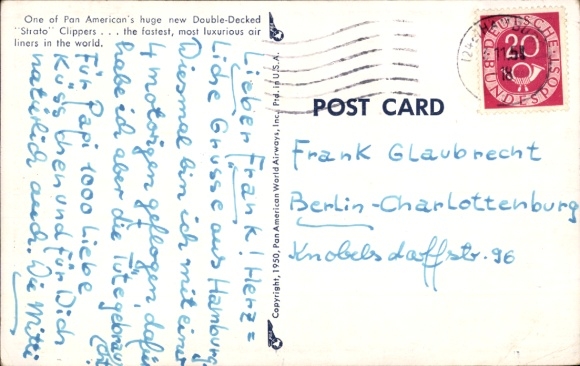 One of Pan American's huge new Double-Decked
"Strato" Clippers . . . the fastest, most luxurious air
liners in the world.
Lieber Frank! Herz=
liche Grüsse aus Hamburg.
Diesmal bin ich mit einer
4 motorigen geflogen, dafür
habe ich aber die Tüte gebrau
cht
Für Papi 1000 liebe
Küsschen und für Dich
natürlich auch. Die Mutti
Copyright, 1950, Pan American World Airways, Inc. Ptd. in U.S.A.
POST CARD
DEUTSCHE
BUNDESPOST
20
Frank Glaubrecht
Berlin-Charlottenburg
Knobelsdorffstr. 96